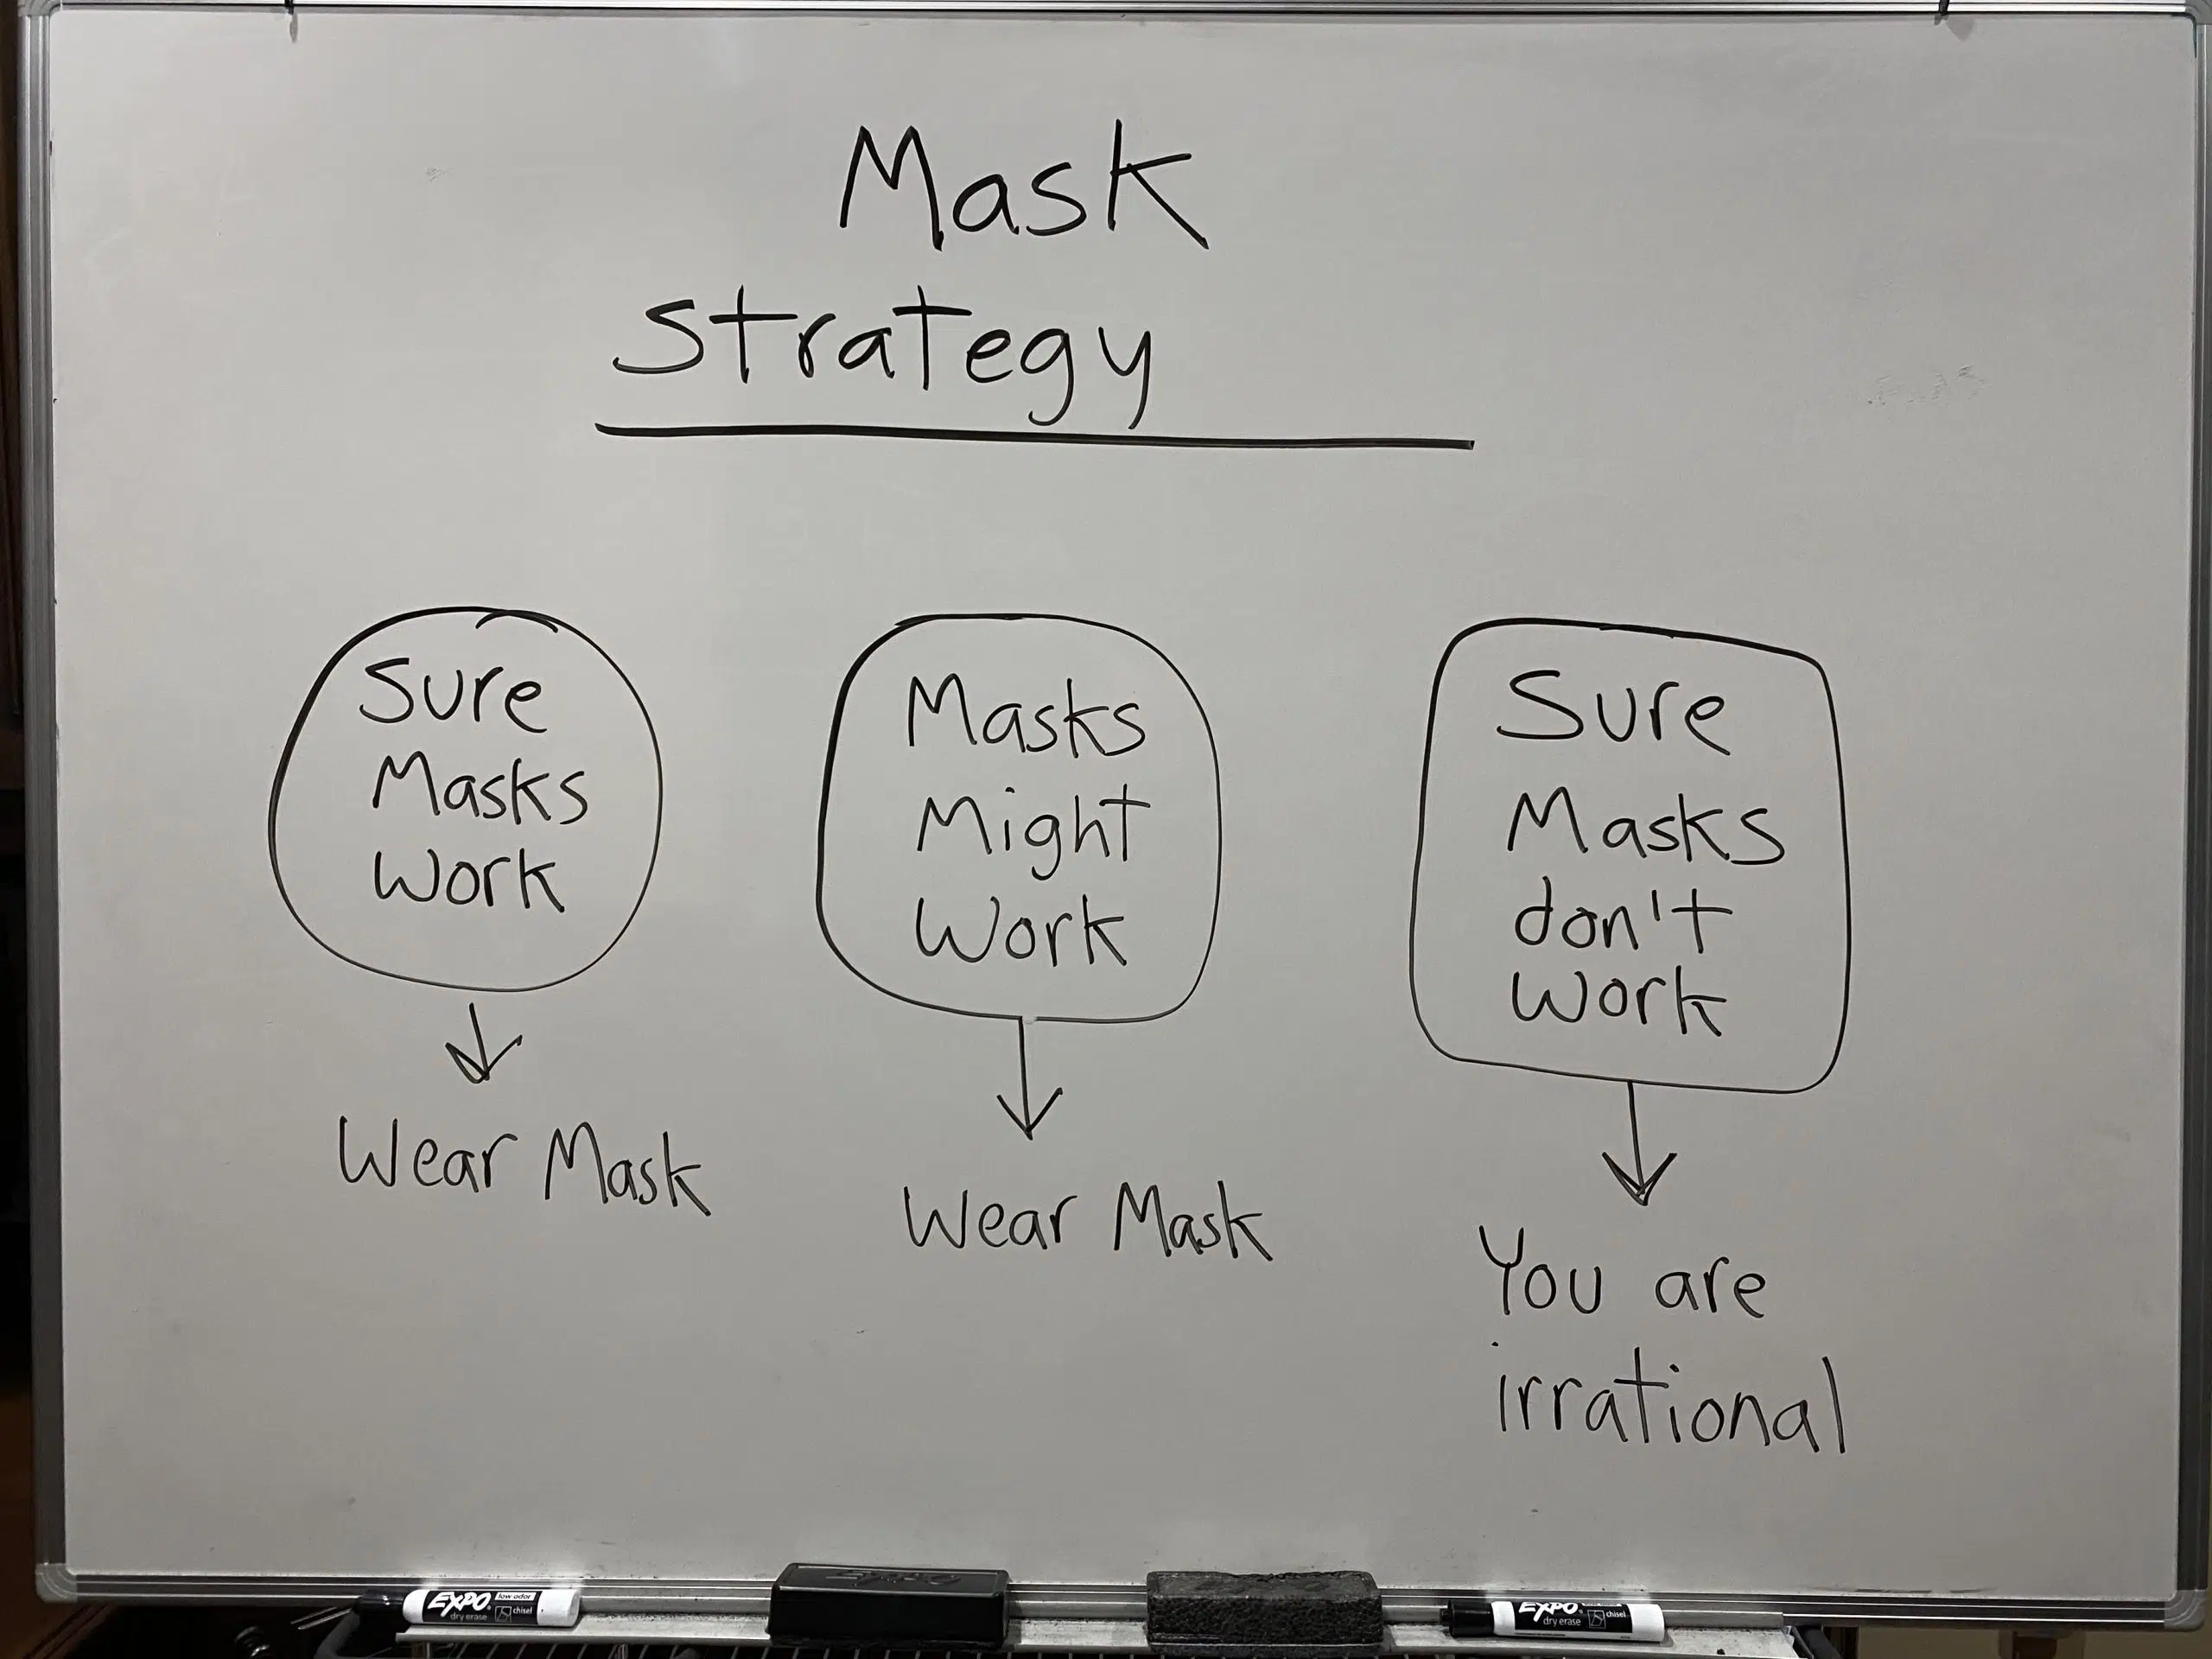 Mask
Strategy
Sure
Masks
Work
Wear Mask
Masks
Might
Work
Wear Mask
Sure
Masks
don't
work
You are
irrational
EXPO low odor
dry erase chisel
EXPO
dry erase chisel